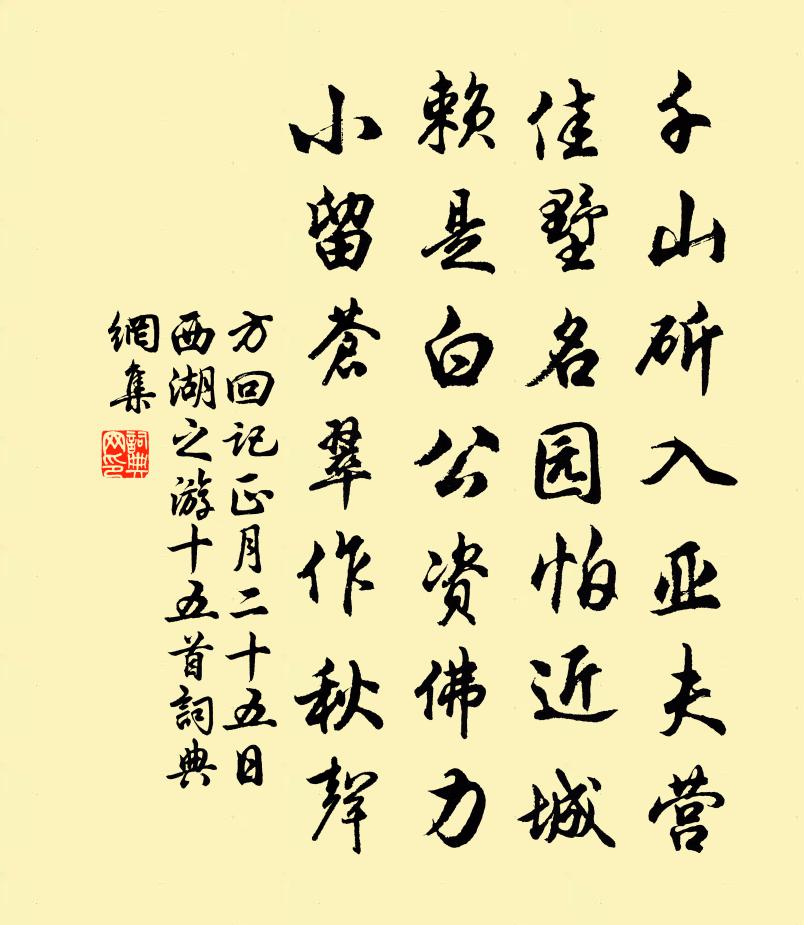 千山斫入亚夫营
佳墅名园怕近城
赖是白公资佛力
小留苍翠作秋聲
方回记正月二十五日
西湖之游十五首詞典
網集
詞典
网印